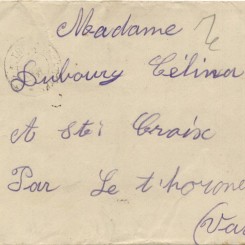 Madame
Dubourg Célina
A Ste Croix
Par Le thoronet
(Var